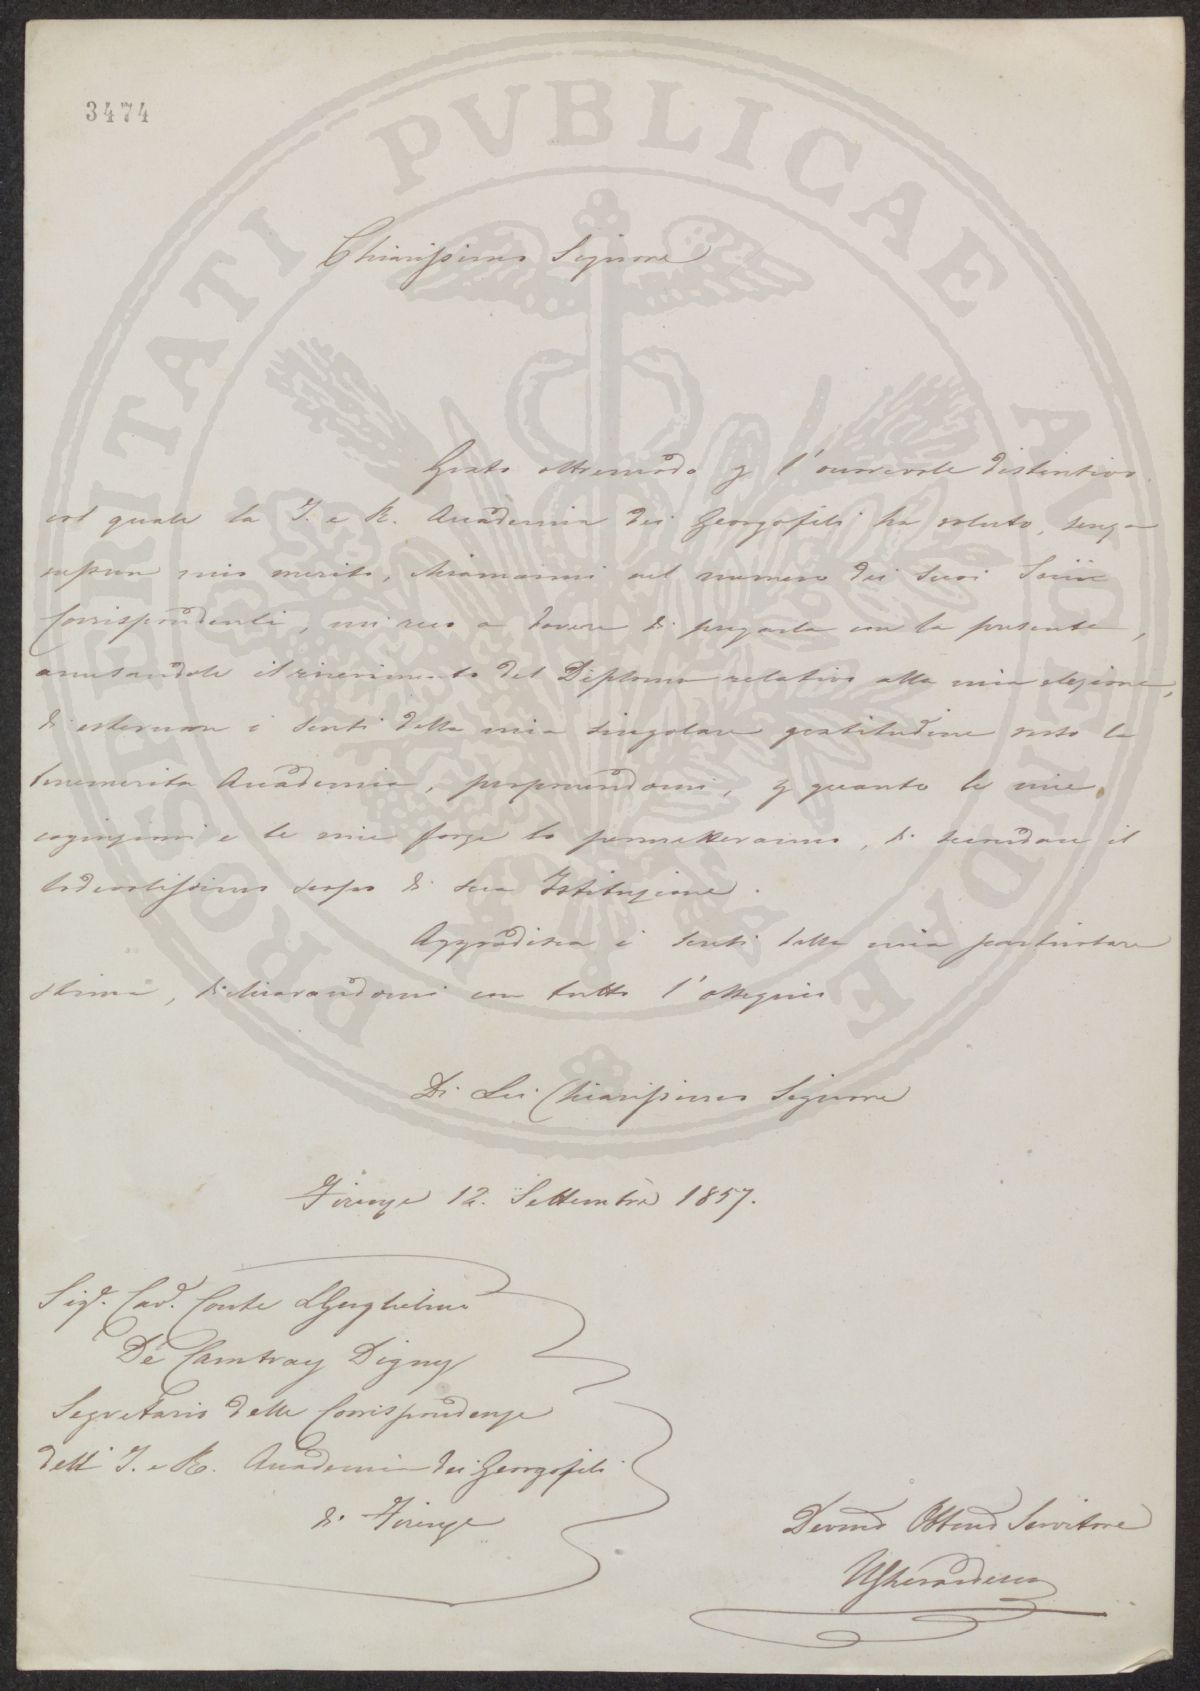 3474
PROSPERITATI PVBLICAE AVGENDAE
Chiarissimo Signore
Grato oltremodo p l'onorevole distintivo
col quale la I. e R. Accademia dei Georgofili ha voluto, senza
nessun mio merito, chiamarmi nel numero dei suoi Socii
Corrispondenti, mi reco a dovere di pregarla con la presente,
accusandole il ricevimento del Diploma relativo alla mia elezione,
di esternare i sensi della mia singolare gratitudine verso la
benemerita Accademia, proponendomi, p quanto le mie
cognizioni e le mie forze lo permetteranno, di secondare il
lodevolissimo scopo di sua Istituzione.
Aggradisca i sensi della mia particolare
stima, dichiarandomi con tutto l'ossequio
Di Lei Chiarissimo Signore
Firenze 12. Settembre 1857.
Sigr. Cav. Conte Guglielmo
De Cambray Digny
Segretario delle Corrispondenze
dell' I. e R. Accademia dei Georgofili
di Firenze
Devmo Obbmo Servitore